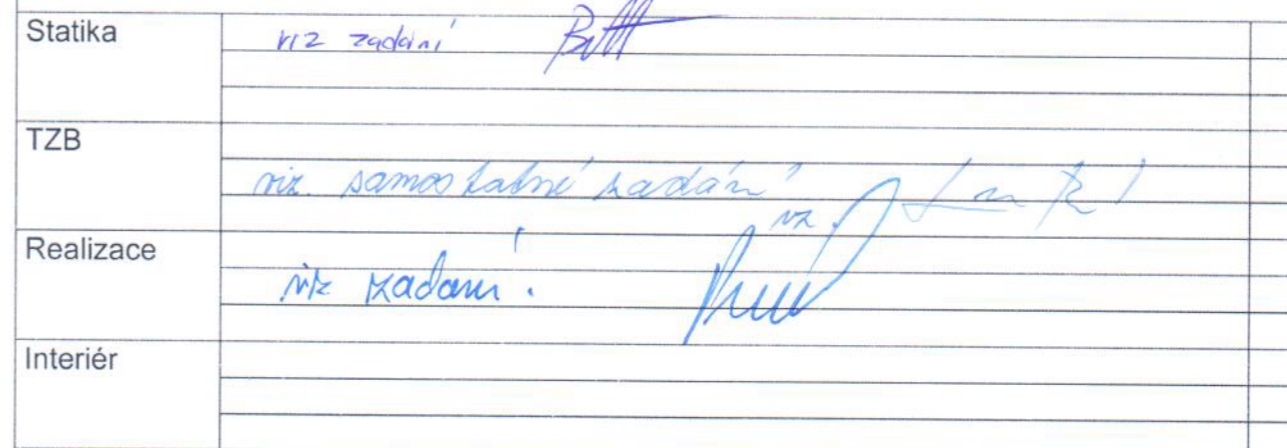 Statika viz zadání
TZB
viz. samostatné zadání
vz.
Realizace
viz zadání.
Interiér